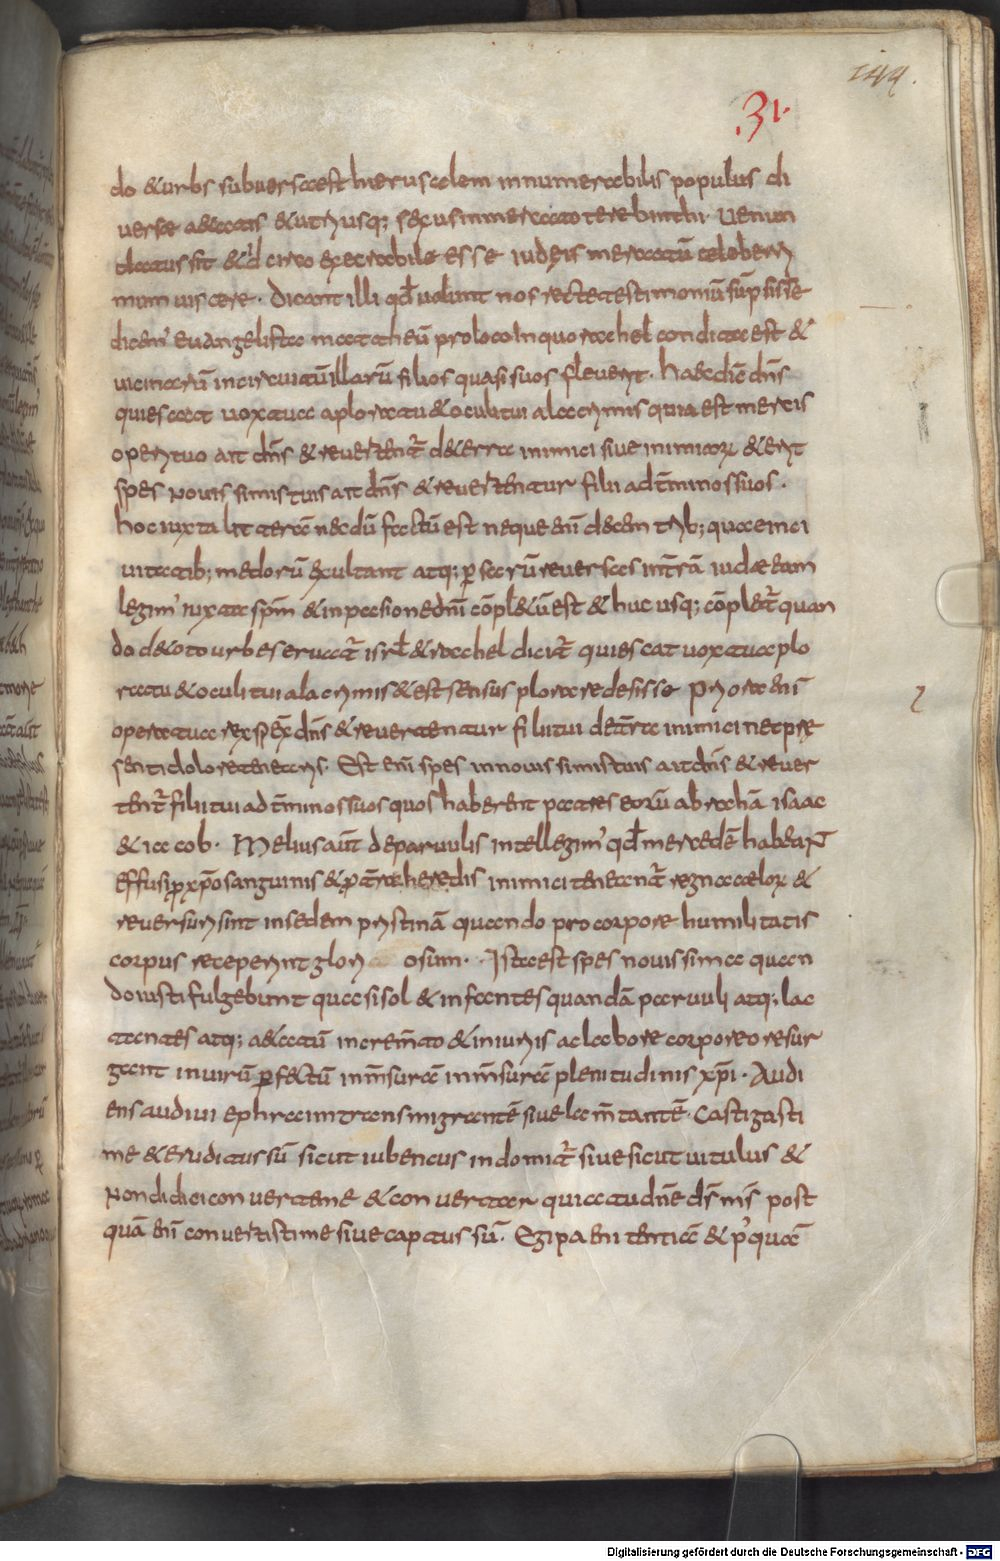 144.
.31.
do & urbs subuersa est hierusalem innumerabilis populus di
uersae aetatis & utriusq; sexus in mercato terebinthi. Uenun
datus sit & idcirco execrabile esse iudeis mercatū celeberri
mum uiscere. Dicant illi qđ uolunt nos recte testimoniū sūpsisse
dicem' euangelista mattheū pro loco In quo rachel condita est &
uicinarū in circuitū illarū filios quasi suos fleuerit. Haec dic̄ dn̄s
quiescat uox tua a ploratu & oculi tui a lacrymis quia est mercis
operi tuo ait dn̄s & reuertent̄ de terra inimici siue inimicorꝝ & erit
spes nouissimis tuis ait dn̄s & reuertentur filii ad t̄minos suos.
hoc iuxta litterā necdū factū est neque eni decem trib; quae in ci
uitatib; medorū exultant atq; ꝑsarū reuersas in t̄rā iudae eam
legim' iuxta sp̄m & in passione dn̄i cōpletū est & huc usq; cōplet̄ quan
do de toto urbe saluat̄ isrl̄ & rachel dicit̄ quiescat uox tua plo
ratu & oculi tui a lacrymis & est sensus plorare desisse Priora eni
opera tua respex̄ dn̄s & reuertentur filii tui de t̄rra inimici nec prę
senti dolore teneris. Est eni spes in nouissimis tuis ait dn̄s & reuer
tent̄ filii tui ad t̄minos suos quos haberent patres eorū abrahā isaac
& iacob. Melius aūt de paruulis intellegim' qđ mercedē habeant
effusi pro xp̄o sanguinis & pro t̄ra heredis inimici teneant̄ regna caelorꝝ &
reuersuri sint in sedem pristinā quando pro corpore humilitatis
corpus receperint glori osum. Ista est spes nouissima quan
do iusti fulgebunt quasi sol & infantes quandā paruuli atq; lac
tantes atq; aetatū increm̄to & iniuriis ac labore corporeo resur
gant in uirū ꝑfectū in m̄surā in m̄surā plenitudinis xp̄i. Audi
ens audiui ephraim transmigrantē siue lam̄tantē. Castigasti
me & eruditus sū sicut iubencus indomit̄ siue sicut uitulus &
Non didici conuerte me & conuertar quia tu dn̄e ds̄ m̄s post
quā eni conuertisti me siue captus sū. Egi paenitentiā & p' quā